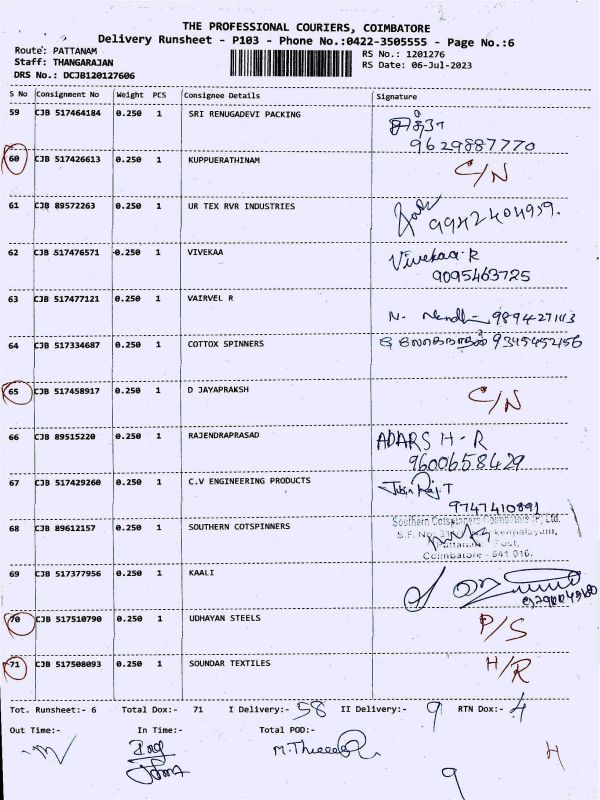 THE PROFESSIONAL COURIERS, COIMBATORE
Delivery Runsheet - P103 - Phone No.:0422-3505555 - Page No.:6
Route: PATTANAM
Staff: THANGARAJAN
DRS No.: DCJB120127606
RS No.: 1201276
RS Date: 06-Jul-2023
S No Consignment No Weight PCS Consignee Details Signature
59 CJB 517464184 0.250 1 SRI RENUGADEVI PACKING
9629887770
60 CJB 517426613 0.250 1 KUPPUERATHINAM C/N
61 CJB 89572263 0.250 1 UR TEX RVR INDUSTRIES
9942404959.
62 CJB 517476571 0.250 1 VIVEKAA Vivekaa.R
9095463725
63 CJB 517477121 0.250 1 VAIRVEL R
N-
64 CJB 517334687 0.250 1 COTTOX SPINNERS 9345452156
65 CJB 517458917 0.250 1 D JAYAPRAKSH C/N
66 CJB 89515220 0.250 1 RAJENDRAPRASAD ADARSH-R
9600658429
67 CJB 517429260 0.250 1 C.V ENGINEERING PRODUCTS
9747410891
68 CJB 89612157 0.250 1 SOUTHERN COTSPINNERS Southern Cotspinners Coimbatore (P) Ltd.
S.F. No.
Post,
Coimbatore - 641 016.
69 CJB 517377956 0.250 1 KAALI
70 CJB 517510790 0.250 1 UDHAYAN STEELS P/S
71 CJB 517508093 0.250 1 SOUNDAR TEXTILES H/R
Tot. Runsheet:- 6 Total Dox:- 71 I Delivery:- 58 II Delivery:- 9 RTN Dox:- 4
Out Time:- In Time:- Total POD:-
H
9